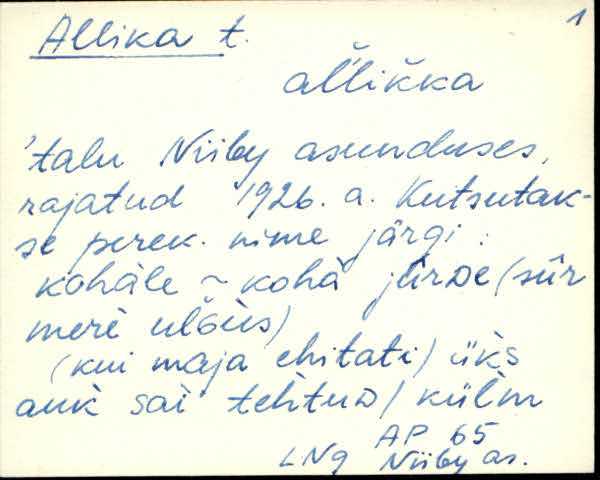 1
Allika t.
al̆likka
'talu Niiby asunduses,
rajatud 1926. a. Kutsutak-
se perek. nime järgi:
kohale ~ koha jurDe (sūr
meri ulGus)
(kui maja ehitati) üks
auk sai tehtuD / külm
AP 65
LNg Niiby as.